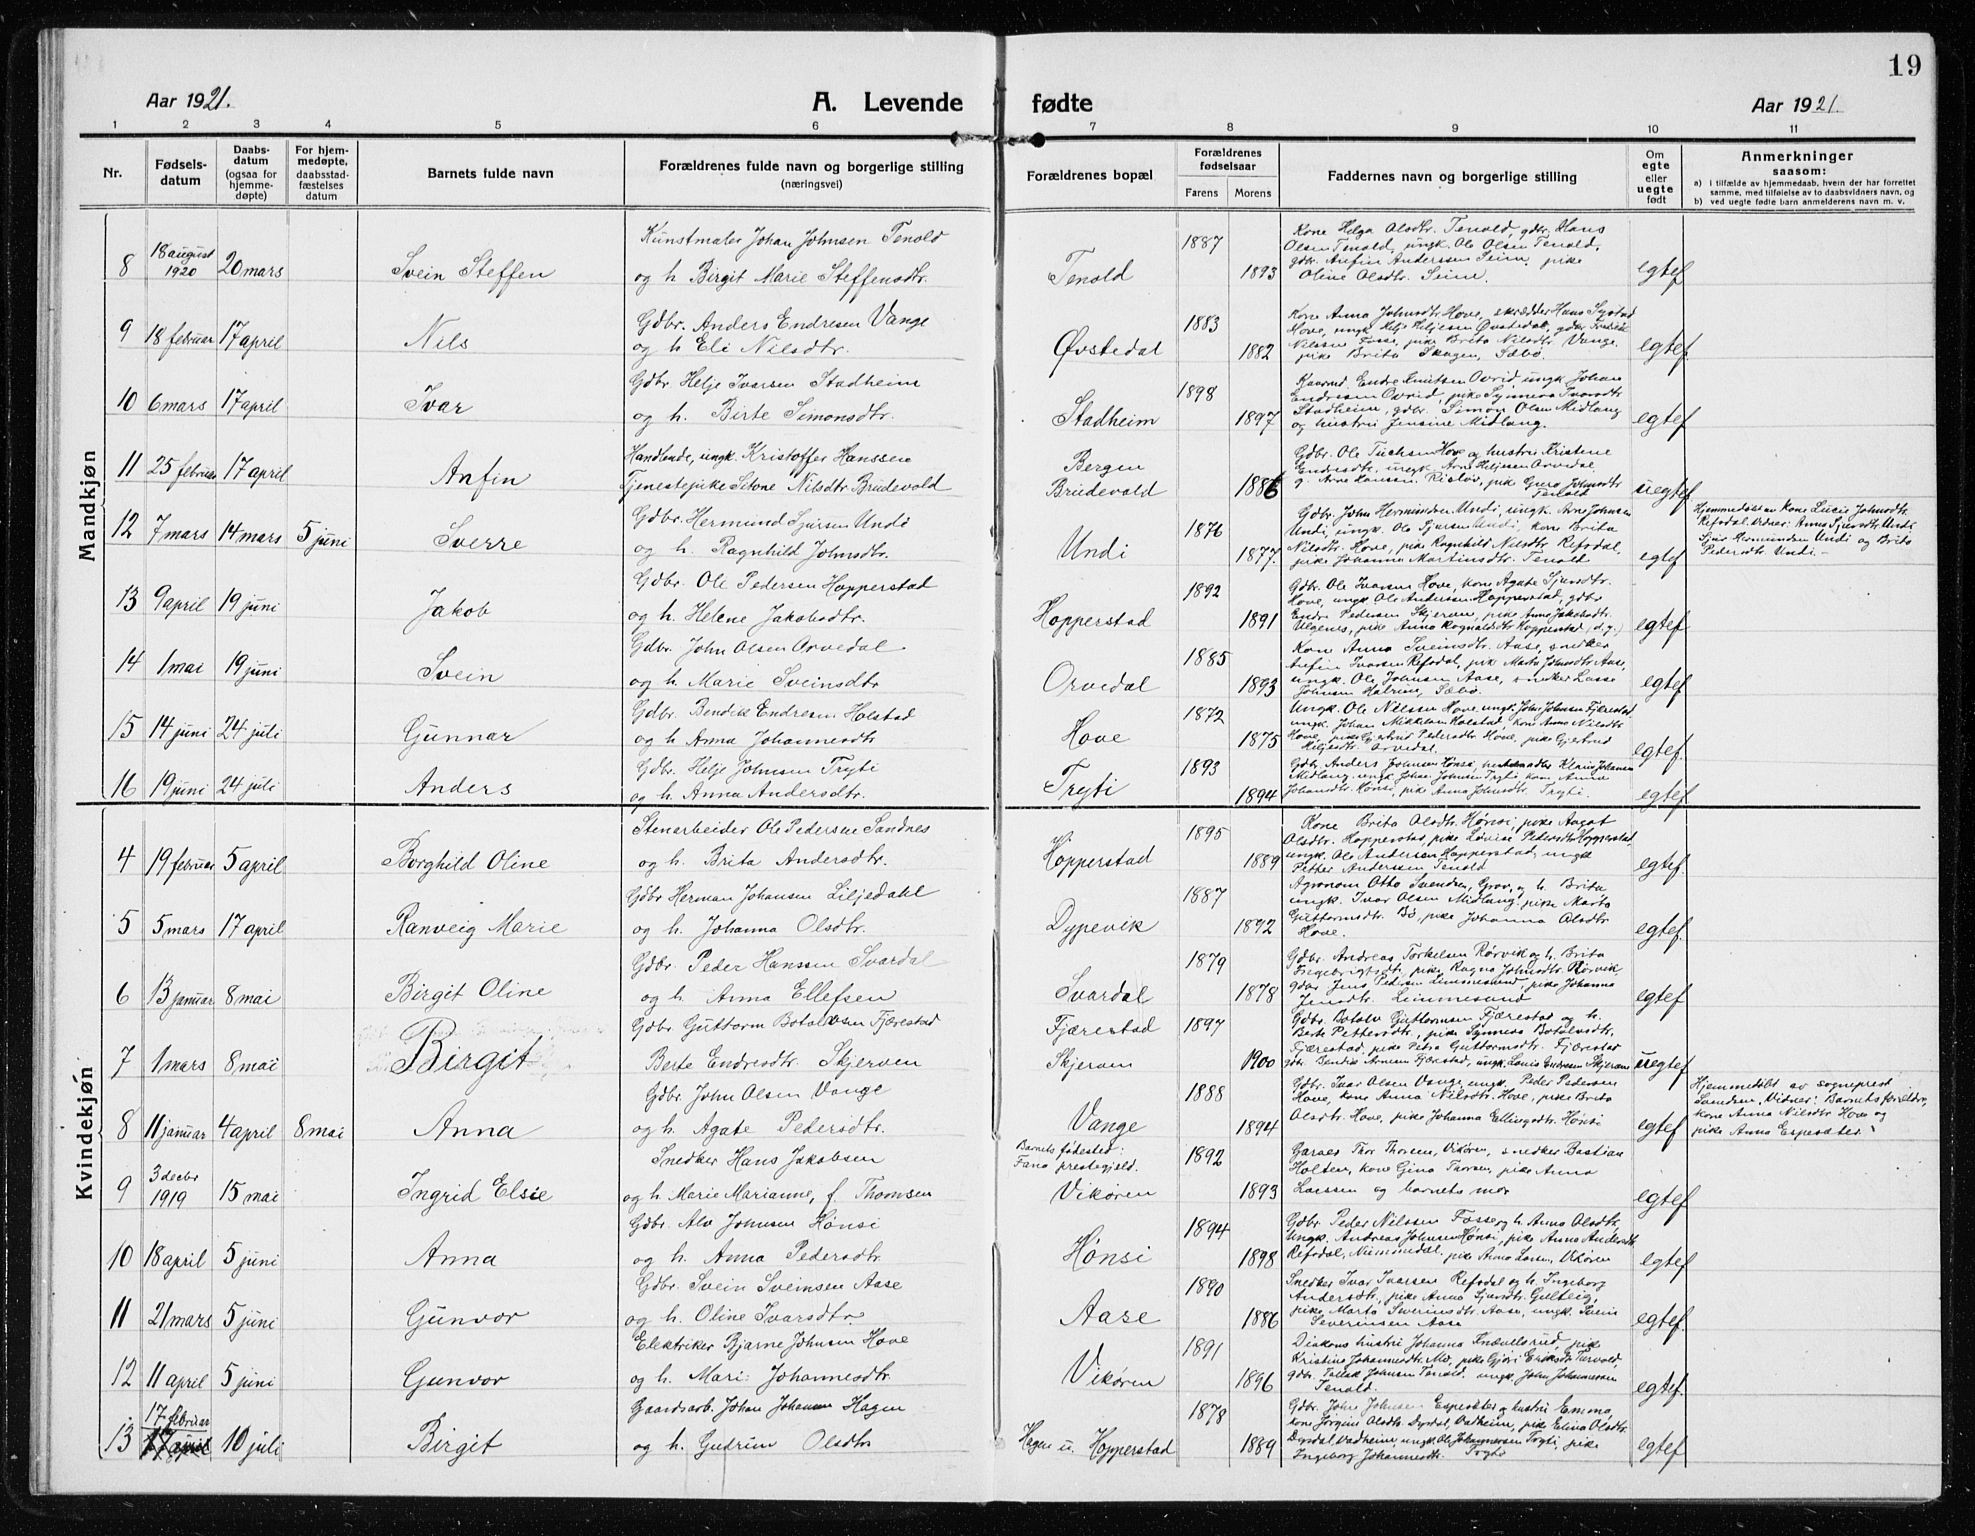 19
Aar 1921.
A. Levende fødte
Aar 1921.
1 2 3 4 5 6 7 8 9 10 11
Nr.
Fødsels-
datum
Daabs-
datum
(ogsaa for
hjemme-
døpte)
For hjem-
medøpte,
daabsstad-
fæstelses
datum
Barnets fulde navn
Forældrenes fulde navn og borgerlige stilling
(næringsvei)
Forældrenes bopæl
Forældrenes
fødselsaar
Farens Morens
Faddernes navn og borgerlige stilling
Om
egte
eller
uegte
født
Anmerkninger
saasom:
a) i tilfælde av hjemmedaab, hvem der har forrettet
samme, med tilføielse av to daabsvidners navn, og
b) ved uegte fødte barn anmelderens navn m. v.
Mandkjøn
8 18 august 1920 20 mars Svein Steffen
Kunstmaler Johan Johnsen Tenold
og h. Birgit Marie Steffensdtr.
Tenold 1887 1893
Kone Helga Olsdtr. Tenold, gdbr. Hans
Olsen Tenold, ungk. Ole Olsen Tenold,
gdr. Anfin Anderssen Seim, pike
Oline Olsdtr. Seim.
egtef
9 18 februar 17 april Nils
Gdbr. Anders Endresen Vange
og h Eli Nilsdtr.
Øvstedal 1883 1882
Kone Anna Johnsdtr Hove, skrædder Hans
Hove, ungk Helje Heljesen Øvstedal, gdbr
Nilssen Fosse, pike Brita Nilsdtr Vange
pike Brita Skagen, Sæbø.
egtef
10 6 mars 17 april Ivar
Gdbr. Helje Ivarsen Stadheim
og h. Birte Simonsdtr.
Stadheim 1898 1897
Endre Knutsen Ovrid, ungk Johan
Endresen Ovrid, pike Synneva Ivarsdtr
Stadheim, gdbr. Simon Olsen Midlang
og hustru Jensine Midlang.
egtef
11 25 februar 17 april Anfin
Handlende, ungk. Kristoffer Hanssen
Tjenestepike Sitone Nilsdtr Brudevold
Bergen
Brudevold 1886
Gdbr. Ole Hove og hustru Kristene
Endresdtr, ungk. Arne Heljesen Orvedal
g. Arne Hanssen Risløv, pik Guro Johnsdtr
Tenold
uegtef
12 7 mars 14 mars 5 juni Sverre
Gdbr. Hermund Sjursen Undi
og h. Ragnhild Johnsdtr.
Undi 1876 1877.
Gdbr. John Hermunden Undi, ungk. Arne Johnsen
Undi, ungk. Ole Sjursen Undi, kone Brita
Nilsdtr. Hove, pike Ragnhild Nilsdtr Refsdal,
pike Johanna Martinsdtr. Tenold
egtef
Hjemmedøbt av kone Lucie Johnsdtr.
Refsdal. Vidner: Anna Sjursdtr. Undi
Sjur Hermunden Undi og Brita
Pedersdtr Undi.-
13 9 april 19 juni Jakob
Gdbr. Ole Pedersen Hopperstad
og h. Helene Jakobsdtr.
Hopperstad 1892 1891
Gdbr. Ole Ivarsen Hove, kone Agate Sjursdtr.
Hove, ungk Ole Andersen Hopperstad, gdbr
Endre Pedersen Skjerven, pike Anna Jakobsdtr.
pike Anna Rognaldsdtr Hopperstad (d.y.)
egtef
14 1 mai 19 juni Svein
Gdbr. John Olsen Orvedal
og h. Marie Sveinsdtr
Orvedal 1885 1893
Kone Anna Sveinsdtr. Aase, snedker
Anfin Ivarsen Refsdal, pik Marta Johnsdtr Aase,
ungk. Ole Johnsen Aase, snedker Lasse
Johnsen Sæbø.
egtef
15 14 juni 24 juli Gunnar
Gdbr. Bendik Endresen Holstad
og h. Anna Johannesdtr
Hove 1872 1875
Ungk. Ole Nilssen Hove, ungk. John Johnsen Fjærestad
ungk. Johan Mikkelsen Holstad, kone Anna Nilsdtr
Hove, pike Gjertrud Pedersdtr Hove, pike Gjertrud
Heljesdtr. Orvedal.
egtef.
16 19 juni 24 juli Anders
Gdbr. Helje Johnsen Tryti
og h. Anna Andersdtr.
Tryti 1893 1894
Gdbr. Anders Johnsen Hønsi, Klaus Johansen
Midlang. ungk Johan Johnsen Tryti kone Anna
Johansdtr. Hønsi, pike Anna Johnsdtr. Tryti.
egtef
Kvindekjøn
4 19 februar 5 april Borghild Oline
Stenarbeider Ole Pedersen Sandnes
og h. Brita Andersdtr.
Hopperstad 1895 1889
Kone Brita Olsdtr. Hønsi, pike Aagot
Olsdtr. Hopperstad, pike Lovise Petersdtr Hopperstad,
ungk. Ole Andersen Hopperstad, ungk
Petter Anderssen Tenold
egtef.
5 5 mars 17 april Ranveig Marie
Gdbr Herman Johansen Liljedahl
og h. Johanna Olsdtr.
Dypevik 1887 1892
Agronom Otto Svendsen, Grov, og h. Brita
ungk. Ivar Olsen Midlang, pike Marta
Guttormsdtr. Bø, pike Johanna Olsdtr
Hove.
egtef.
6 13 januar 8 mai Birgit Oline
Gdbr. Peder Hanssen Svardal
og h. Anna Ellefsen
Svardal 1879 1878
Gdbr. Andreas Torkelsen Rørvik og h. Brita
Ingebrigtsdtr, pike Ragna Johnsdtr. Rørvik
gdbr Jens Pedersen Lemmesund, pike Johanna
Jensdtr. Lemmesund
egtef
7 1 mars 8 mai Birgit
Gdbr. Guttorm Botolvsen Fjærestad
Berte Endresdtr Skjerven
Fjærestad
Skjerven 1897 1900
Gdbr. Botolv Guttormsen Fjærestad og h.
Berte Pettersdtr, pike Synneva Botolvsdtr.
Fjærestad, pike Petra Guttormsdtr. Fjærestad
gdbr Bendik Arnesen Fjærestad, ungk Louis Endresen Skjerven
uegtef
8 11 januar 4 april 8 mai Anna
Gdbr. John Olsen Vange
og h. Agate Pedersdtr.
Vange 1888 1894
Gdbr. Ivar Olsen Vange, ungk. Peder Pedersen
Hove, kone Anna Nilsdtr. Hove, pike Brita
Olsdtr. Hove, pike Johanna Ellingsdtr. Hønsi
egtef
Hjemmedøbt av sogneprest
Svendsen, Vidner: Barnets forældre,
kone Anna Nilsdtr Hove og
pike Anna Espesæter.
9 3 decbr 1919 15 mai Ingrid Elsie
Snedker Hans Jakobsen
og h. Marie Marianne, f. Thomsen
Barnets fødested:
Fana prestegjeld.
Vikøren 1892 1893
Garver Thor Thorsen, Vikøren, snedker Bastian
Holten, kone Gina Thorsen, pike Anna
Larssen og barnets mor
egtef
10 18 april 5 juni Anna
Gdbr. Alv Johnsen Hønsi
og h. Anna Pedersdtr
Hønsi 1894 1898
Gdbr Peder Nilssen Fosse og h. Anna Olsdtr,
Ungk. Andreas Johnsen Hønsi, pike Anna Andersdtr.
Refsdal, Nummedal, pike Anna Larsen, Vikøren
egtef
11 21 mars 5 juni Gunvor
Gdbr. Svein Sveinsen Aase
og h. Oline Ivarsdtr.
Aase 1890 1886
Snedker Ivar Ivarsen Refsdal og h. Ingeborg
Andersdtr., pike Anna Sjursdtr. Gulteig,
pike Marta Severinsdtr. Aase, ungk. Svein
Severinsen Aase
egtef.
12 11 april 5 juni Gunvor
Elektriker Bjarne Johnsen Hove
og h. Mari Johannesdtr
Vikøren 1891 1896
Diakons hustru Johanna Knævelsrud, pik
Kristine Johannesdtr. Mo, pike Gjøri Eriksdtr Turvold,
gdbr. Tollak Johnsen Tenold, ungk. John Johannessen
Tenold.
egtef.
13 17 februar 17 april 10 juli Birgit
Gaardsarb. Johan Johansen Hagen
og h. Gudrun Olsdtr
Hagen u. Hopperstad 1878 1889
Gdbr. John Johnsen Espeseter og hustru Emma,
kone Jørgine Olsdtr Dyrdal, Vadheim, pik Elina Olsdtr
Dyrdal, Vadheim, ungk. Ole Johannessen Tryti, pike
Ingeborg Johannesdtr. Tryti
egtef